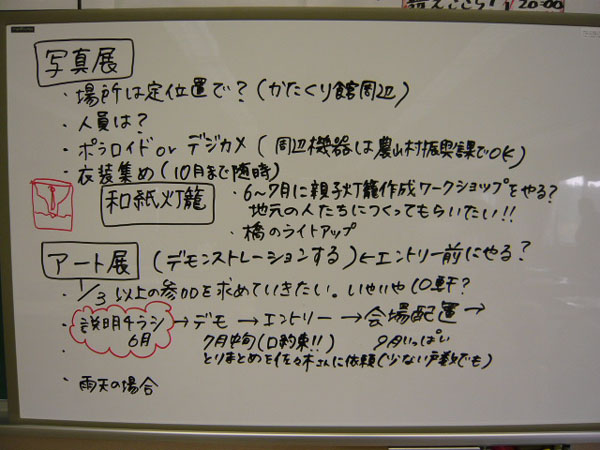 20:00
写真展
・場所は定位置で？(かたくり館周辺)
・人員は？
・ポラロイドorデジカメ(周辺機器は農山村振興課でOK)
・衣装集め(10月まで随時)
和紙灯籠
・6～7月に親子灯籠作成ワークショップをやる？
地元の人たちにつくってもらいたい!!
・橋のライトアップ
アート展 (デモンストレーションする)←エントリー前にやる？
・1/3以上の参加を求めていきたい。いやいや10軒？
・説明チラシ 6月→デモ→エントリー→会場配置→
7月中旬(口約束!!) 9月いっぱい
とりまとめを佐々木さんに依頼(少ない戸数でも)
・
・雨天の場合